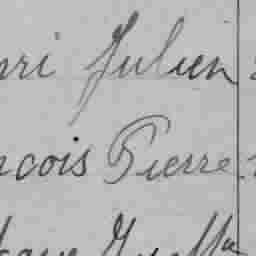 nri Julien
ncois Pierre